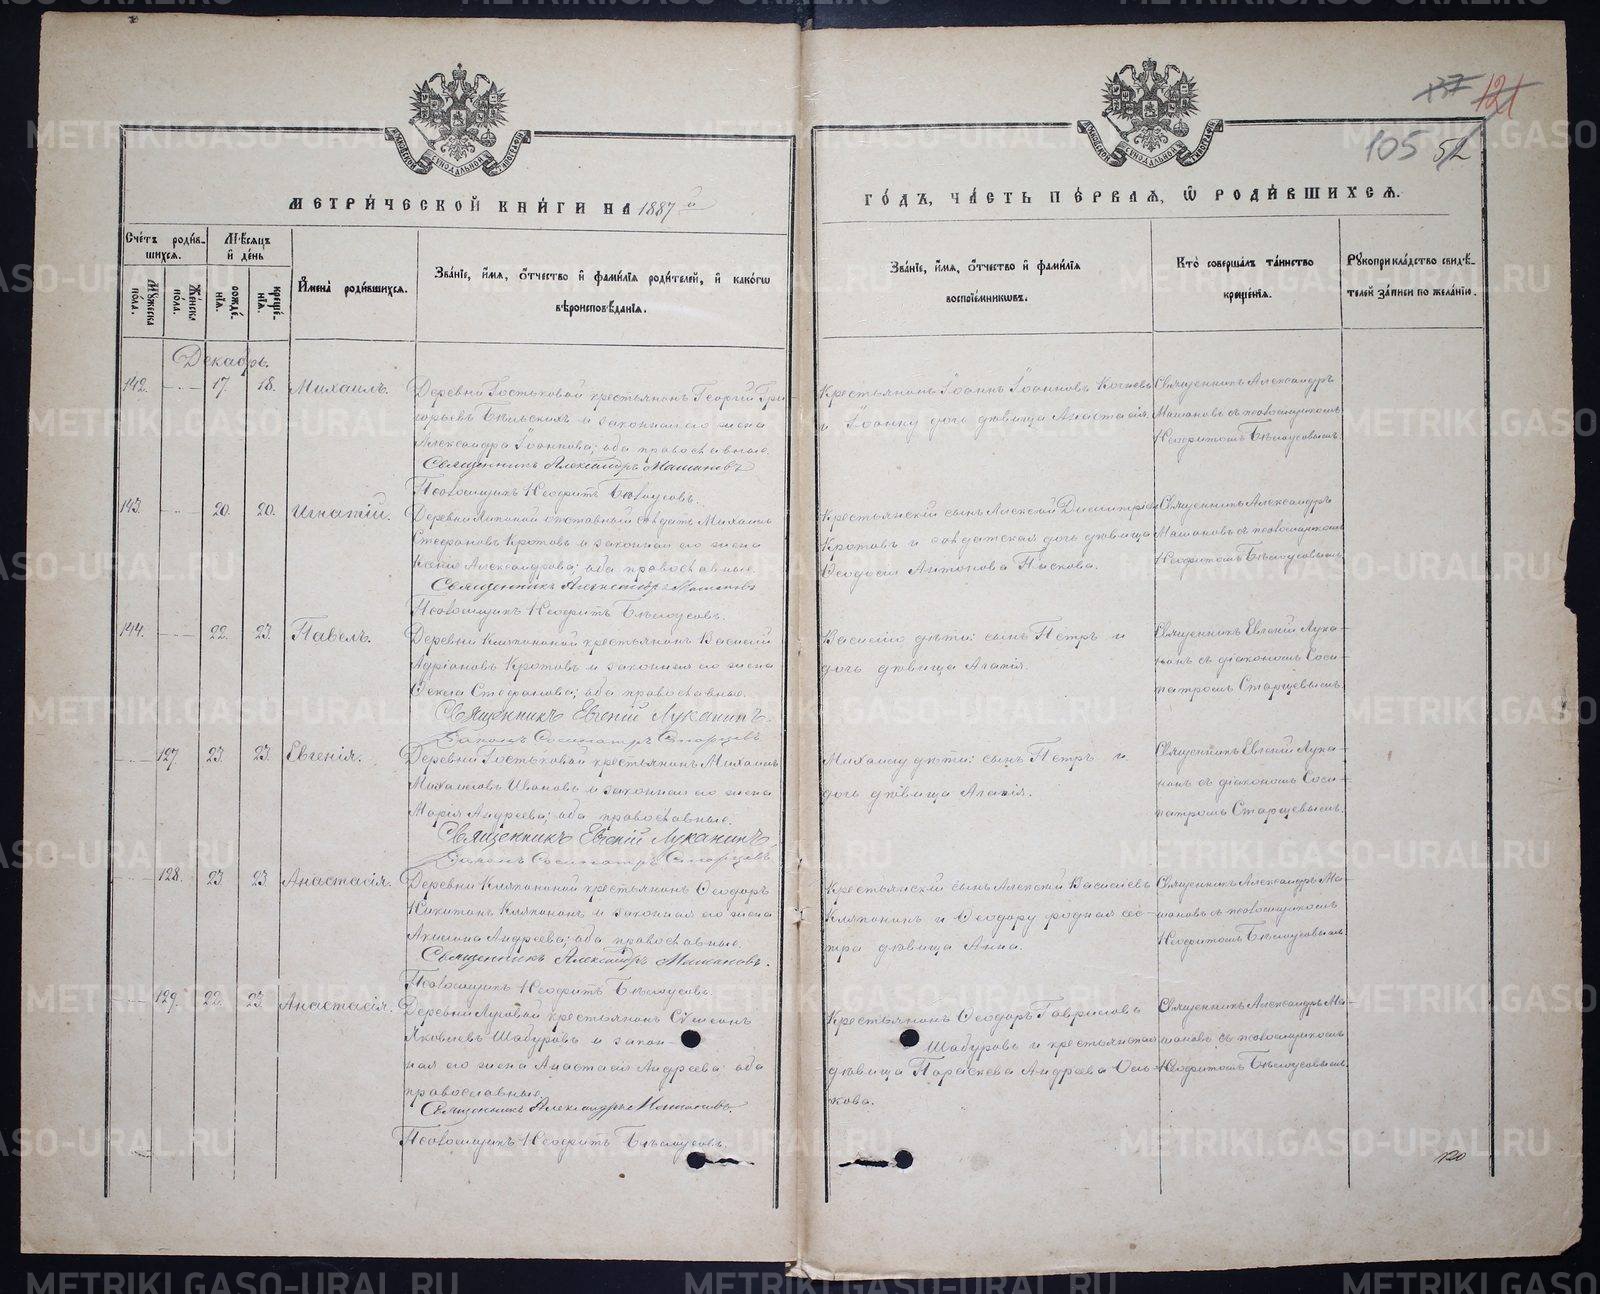 137 121
105 52
МОСКОВСКОЙ СѴНОДАЛЬНОЙ ТИПОГРАФІИ
МОСКОВСКОЙ СѴНОДАЛЬНОЙ ТИПОГРАФІИ
МЕТРИ́ЧЕСКОЙ КНИ́ГИ НА 1887й
ГО́ДЪ, ЧА́СТЬ ПЕ́РВАѦ, Ѡ҆ РОДИ́ВШИХСѦ.
Сче́тъ роди́вшихсѧ.
Мꙋ́жеска по́ла.
Же́нска по́ла.
Мѣ́сѧцъ и҆ де́нь
рожде́нїѧ.
креще́нїѧ.
И҆мена̀ роди́вшихсѧ.
Зва́нїе, и҆́мѧ, о҆́тчество и҆ фами́лїѧ роди́телей, и҆ како́гѡ
вѣроисповѣ́данїѧ.
Зва́нїе, и҆́мѧ, о҆́тчество и҆ фами́лїѧ
воспрїе́мникѡвъ.
Кто̀ соверша́лъ та́инство
креще́нїѧ.
Рꙋкоприкла́дство свидѣ́-
телей за́писи по жела́нїю.
Декабрь.
142. 17. 18. Михаилъ.
Деревни Гостьковой крестьянинъ Георгій Гри-
горьевъ Бѣльскихъ и законная его жена
Александра Іоаннова; оба православные.
Священникъ Александръ Машановъ
Псаломщикъ Неофитъ Бѣлоусовъ.
Крестьянинъ Іоаннъ Іоанновъ
и Іоанну дочь дѣвица Анастасія.
Священникъ Александръ
Машановъ съ псаломщикомъ
Неофитомъ Бѣлоусовымъ.
143. 20. 20. Игнатій.
Деревни отставный солдатъ Михаилъ
Стефановъ Кротовъ и законная его жена
Александрова; оба православные.
Священникъ Александръ Машановъ
Псаломщикъ Неофитъ Бѣлоусовъ.
Крестьянскій сынъ Алексій Димитріевъ
Кротовъ и солдатская дочь дѣвица
Ѳеодосія Антонова Пыскова.
Священникъ Александръ
Машановъ съ псаломщикомъ
Неофитомъ Бѣлоусовымъ.
144. 22. 23. Павелъ.
Деревни Кляпининой крестьянинъ Василій
Адріановъ Кротовъ и законная его жена
Ѳекла Стефанова; оба православные.
Священникъ Евгеній Луканинъ.
Діаконъ Сосипатръ Старцевъ
Василію дѣти: сынъ Петръ и
дочь дѣвица Агапія.
Священникъ Евгеній Лука-
нинъ съ діакономъ Соси-
патромъ Старцевымъ.
127. 23. 23. Евгенія.
Деревни Гостьковой крестьянинъ Михаилъ
Михаиловъ Ивановъ и законная его жена
Марія Андреева; оба православные.
Священникъ Евгеній Луканинъ
Діаконъ Сосипатръ Старцевъ
Михаилу дѣти: сынъ Петръ и
дочь дѣвица Агапія.
Священникъ Евгеній Лука-
нинъ съ діакономъ Соси-
патромъ Старцевымъ.
128. 23. 23. Анастасія.
Деревни Кляпининой крестьянинъ Ѳеодоръ
Никитинъ Кляпининъ и законная его жена
Акилина Андреева; оба православные.
Священникъ Александръ Машановъ.
Псаломщикъ Неофитъ Бѣлоусовъ.
Крестьянскій сынъ Алексій Василіевъ
Кляпининъ и Ѳеодору родная сес-
тра дѣвица Анна.
Священникъ Александръ Ма-
шановъ съ псаломщикомъ
Неофитомъ Бѣлоусовымъ.
129. 22. 23. Анастасія.
Деревни Луговой крестьянинъ Сѵмеонъ
Яковлевъ Шабуровъ и закон-
ная его жена Анастасія Андреева оба
православные.
Священникъ Александръ Машановъ.
Псаломщикъ Неофитъ Бѣлоусовъ.
Крестьянинъ Ѳеодоръ Гавриловъ
Шабуровъ и крестьянская
дѣвица Параскева Андреева
Священникъ Александръ Ма-
шановъ съ псаломщикомъ
Неофитомъ Бѣлоусовымъ.
120
METRIKI.GASO-URAL.RU